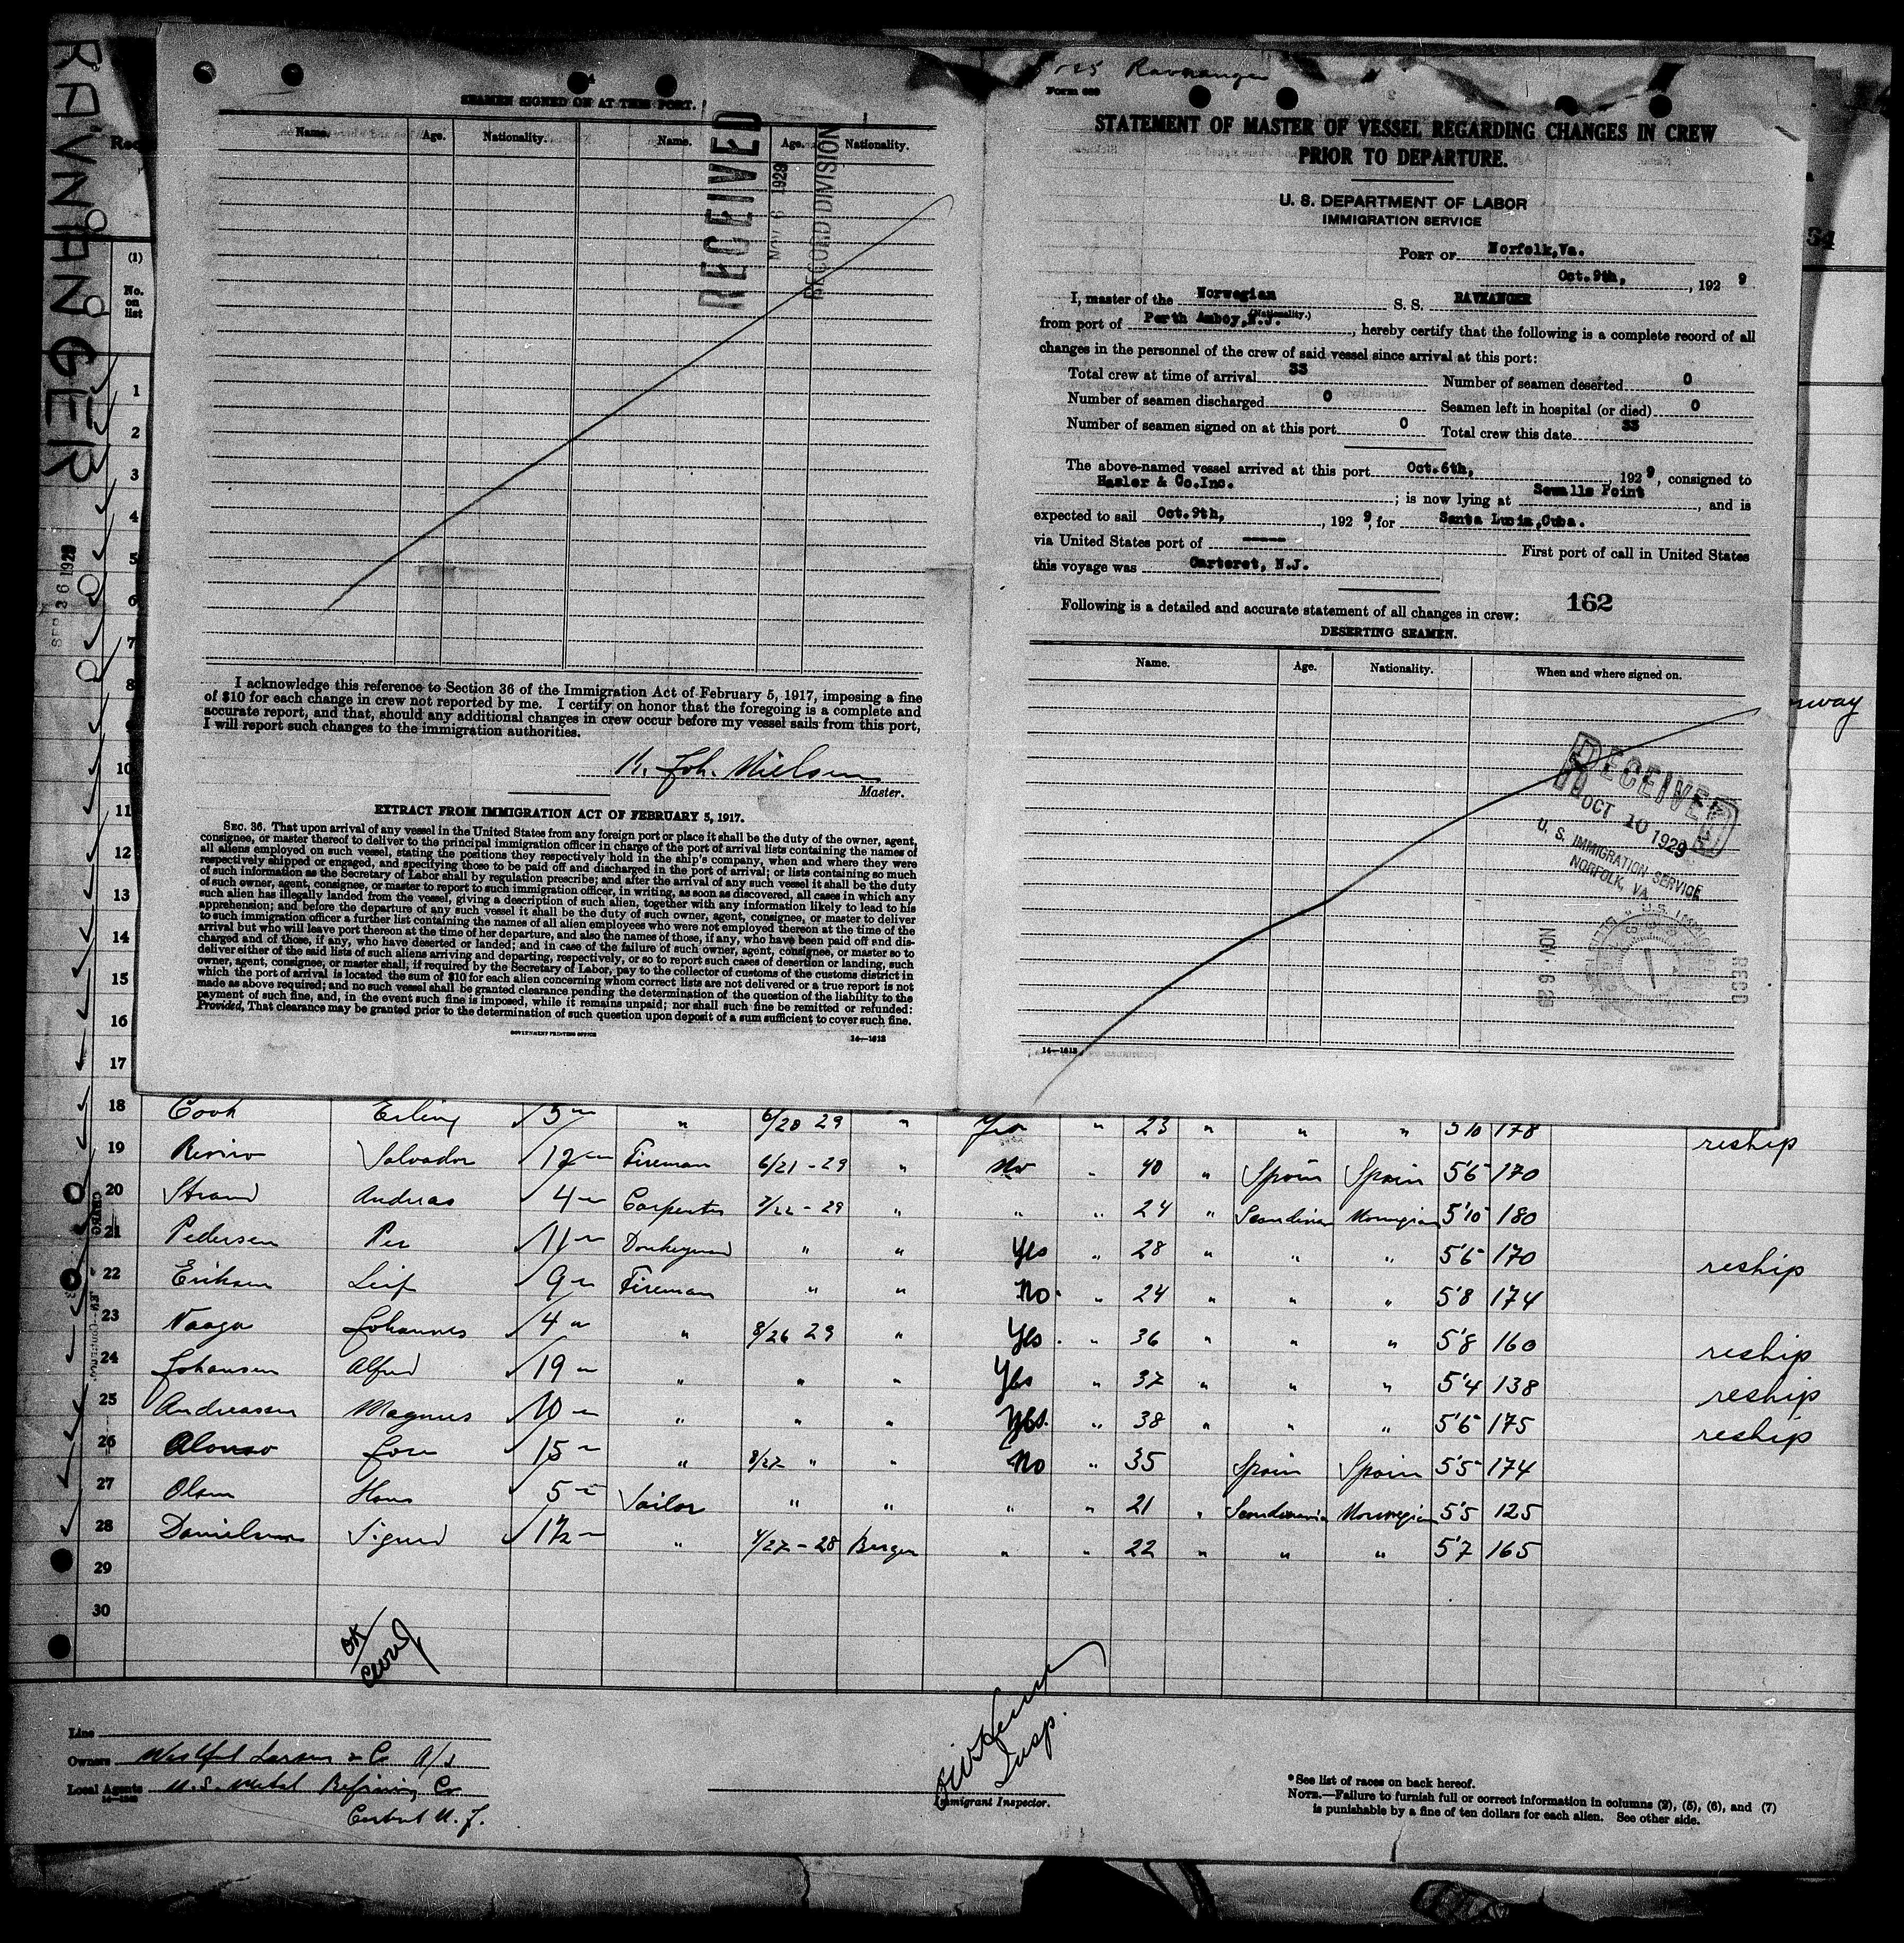 RAVNANGER
SEP 26 1929
SEAMEN SIGNED ON AT THIS PORT.
Name. Age. Nationality. Name. Age. Nationality.
RECEIVED
NOV 6 1929
RECORD DIVISION
I acknowledge this reference to Section 36 of the Immigration Act of February 5, 1917, imposing a fine
of $10 for each change in crew not reported by me. I certify on honor that the foregoing is a complete and
accurate report, and that, should any additional changes in crew occur before my vessel sails from this port,
I will report such changes to the immigration authorities.
K. Joh. Nielsen
Master.
EXTRACT FROM IMMIGRATION ACT OF FEBRUARY 5, 1917.
SEC. 36. That upon arrival of any vessel in the United States from any foreign port or place it shall be the duty of the owner, agent,
consignee, or master thereof to deliver to the principal immigration officer in charge of the port of arrival lists containing the names of
all aliens employed on such vessel, stating the positions they respectively hold in the ship's company, when and where they were
respectively shipped or engaged, and specifying those to be paid off and discharged in the port of arrival; or lists containing so much
of such information as the Secretary of Labor shall by regulation prescribe; and after the arrival of any such vessel it shall be the duty
of such owner, agent, consignee, or master to report to such immigration officer, in writing, as soon as discovered, all cases in which any
such alien has illegally landed from the vessel, giving a description of such alien, together with any information likely to lead to his
apprehension; and before the departure of any such vessel it shall be the duty of such owner, agent, consignee, or master to deliver
to such immigration officer a further list containing the names of all alien employees who were not employed thereon at the time of the
arrival but who will leave port thereon at the time of her departure, and also the names of those, if any, who have been paid off and dis-
charged and of those, if any, who have deserted or landed; and in case of the failure of such owner, agent, consignee, or master so to
deliver either of the said lists of such aliens arriving and departing, respectively, or so to report such cases of desertion or landing, such
owner, agent, consignee, or master shall, if required by the Secretary of Labor, pay to the collector of customs of the customs district in
which the port of arrival is located the sum of $10 for each alien concerning whom correct lists are not delivered or a true report is not
made as above required; and no such vessel shall be granted clearance pending the determination of the question of the liability to the
payment of such fine, and, in the event such fine is imposed, while it remains unpaid; nor shall such fine be remitted or refunded:
Provided, That clearance may be granted prior to the determination of such question upon deposit of a sum sufficient to cover such fine.
GOVERNMENT PRINTING OFFICE 14—1613
Ravnanger
Form 689
STATEMENT OF MASTER OF VESSEL REGARDING CHANGES IN CREW
PRIOR TO DEPARTURE.
U. S. DEPARTMENT OF LABOR
IMMIGRATION SERVICE
PORT OF Norfolk,Va.
Oct.9th, , 192 9
I, master of the Norwegian S. S. RAVNANGER
(Nationality.)
from port of Perth Amboy,N.J. , hereby certify that the following is a complete record of all
changes in the personnel of the crew of said vessel since arrival at this port:
Total crew at time of arrival 33 Number of seamen deserted 0
Number of seamen discharged 0 Seamen left in hospital (or died) 0
Number of seamen signed on at this port 0 Total crew this date 33
The above-named vessel arrived at this port Oct.6th, , 192 9, consigned to
Hasler & Co.Inc. ; is now lying at Sewalls Point , and is
expected to sail Oct.9th, , 192 9, for Santa Lucia,Cuba.
via United States port of ----- First port of call in United States
this voyage was Carteret, N.J.
162
Following is a detailed and accurate statement of all changes in crew:
DESERTING SEAMEN.
Name. Age. Nationality. When and where signed on.
RECEIVED
OCT 10 1929
U. S. IMMIGRATION SERVICE
NORFOLK, VA.
NOV. 6 29
RECD
14—1613
(1)
No.
on
list
1
2
3
4
5
6
7
8
9
10
11
12
13
14
15
16
17
18 Cook Erling 5 " 6/20 29 " Yes " 23 " " " 5 10 178 reship
19 Salvador 12 Fireman 6/21-29 " No " 40 " Spain Spain 5'6 170
20 Strand Andreas 4 Carpenter 7/22-29 " " " 24 " Scandinav Norwegian 5'10 180
21 Pedersen Per 11 Donkeyman " " Yes " 28 " " " 5'6 170 reship
22 Eriksen Leif 9 Fireman " " No " 24 " " " 5'8 174
23 Johannes 4 " 8/26 29 " Yes " 36 " " " 5'8 160 reship
24 Johansen Alfred 19 " " " Yes " 37 " " " 5'4 138 reship
25 Andreassen Magnus 10 " " " Yes " 38 " " " 5'6 175 reship
26 Alonso Jose 15 " 8/27 " " No " 35 Spain Spain 5'5 174
27 Olsen Hans 5 Sailor " " " " 21 " Scandinavia Norwegian 5'5 125
28 Danielsen Sigurd 1½ " 4/27-28 Bergen " " 22 " " " 5'7 165
29
30
OK
Line
Owners Westfal Larsen & Co A/S
Local Agents U.S. Metal Refining Co
Carteret N.J.
14—1613
Insp.
Immigrant Inspector.
* See list of races on back hereof.
NOTE.—Failure to furnish full or correct information in columns (2), (5), (6), and (7)
is punishable by a fine of ten dollars for each alien. See other side.